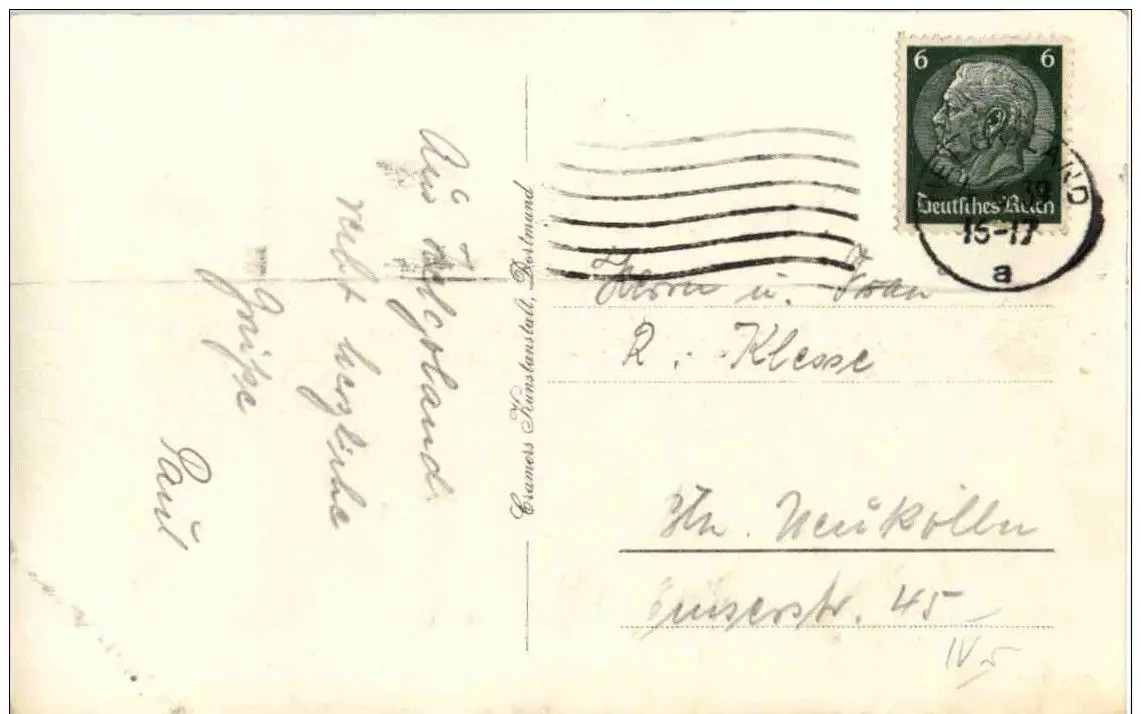 Aus Helgoland
recht herzliche
Grüße
Paul
Cramers Kunstanstalt, Dortmund
6 6
Deutsches Reich
HELGOLAND
15-17
a
Herrn u. Frau
R. Klesse
Bln. Neukölln
45
IV